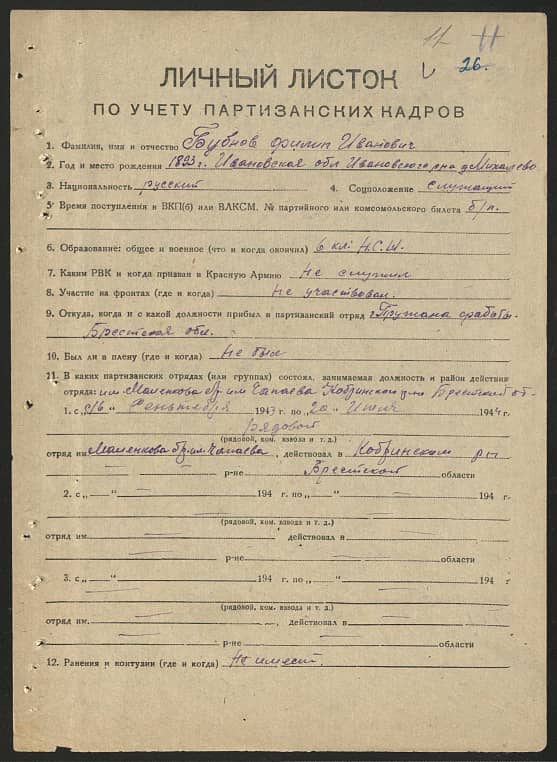 11 11
26.
ЛИЧНЫЙ ЛИСТОК
ПО УЧЕТУ ПАРТИЗАНСКИХ КАДРОВ
1. Фамилия, имя и отчество Бубнов Филип Иванович
2. Год и место рождения 1893 г. Ивановская обл Ивановского р-на д. Михалево
3. Национальность русский 4. Соцположение служащий
5. Время поступления в ВКП(б) или ВЛКСМ. № партийного или комсомольского билета б/п.
6. Образование: общее и военное (что и когда окончил) 6 кл. Н.С.Ш.
7. Каким РВК и когда призван в Красную Армию Не служил
8. Участие на фронтах (где и когда) Не участвовал.
9. Откуда, когда и с какой должности прибыл в партизанский отряд г. Пружана с работы
Брестская обл.
10. Был ли в плену (где и когда) Не был
11. В каких партизанских отрядах (или группах) состоял, занимаемая должность и район действия
отряда: им Маленкова бр. им Чапаева Кобринском р-не Брестской об-
1. с „16“ Сентября 1943 г. по „20“ 1944 г.
рядовой
(рядовой, ком. взвода и т. д.)
отряд им. Маленкова бр. им. Чапаева, действовал в Кобринском
р-не Брестской области
2. с „—“ 194 г. по „—“ 194 г.
(рядовой, ком. взвода и т. д.)
отряд им. действовал в
р-не области
3. с „—“ 194 г. по „—“ 194 г
(рядовой, ком. взвода и т. д.)
отряд им. действовал в
р-не области
12. Ранения и контузии (где и когда) Не имеет.